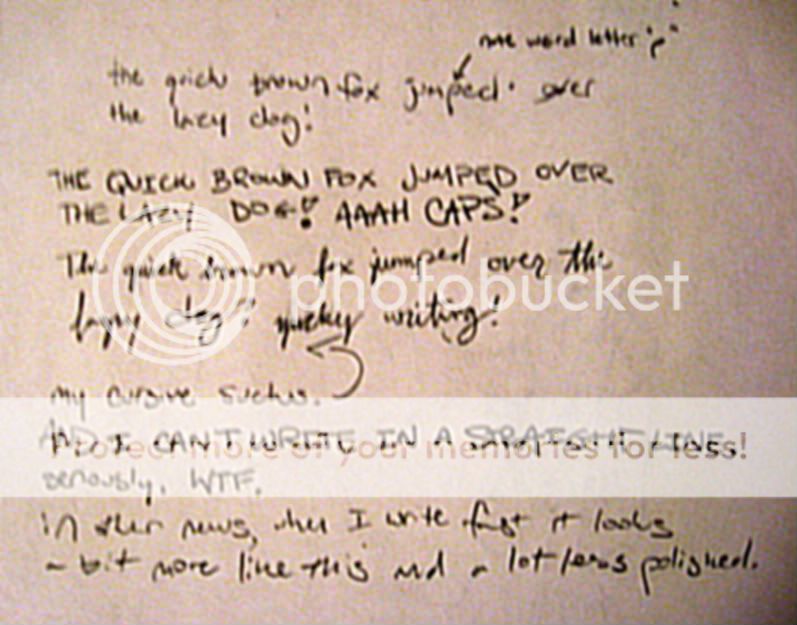 one word letter "p"
the quick brown fox jumped. over
the lazy dog!
THE QUICK BROWN FOX JUMPED OVER
THE LAZY DOG! AAAH CAPS!
The quick brown fox jumped over the
lazy dog! yucky writing!
photobucket
my cursive sucks.
AND I CAN'T WRITE IN A STRAIGHT LINE.
more of your memories for less!
seriously, WTF.
in other news, when I write fast it looks
a bit more like this and a lot less polished.